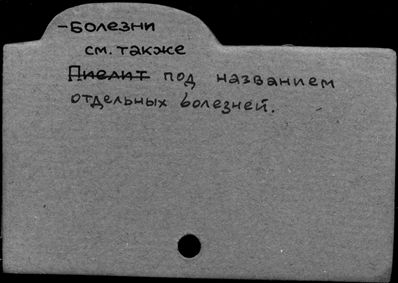 -Болезни
см. также
Пиелит под названием
отдельных болезней.